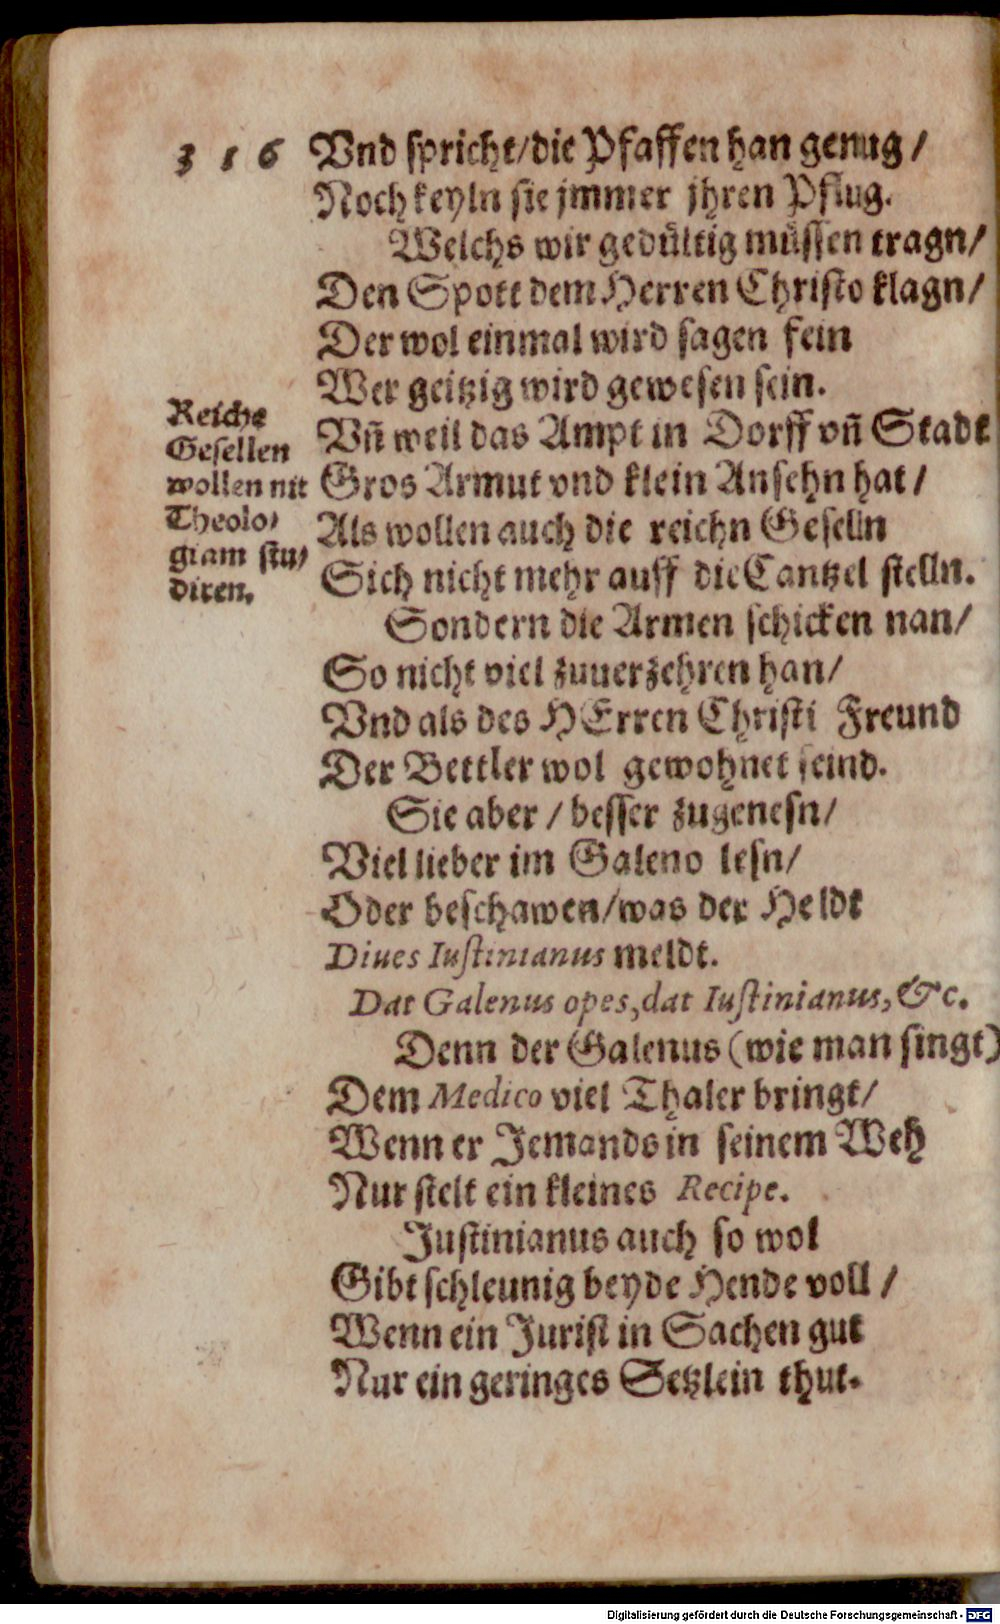 316 Vnd spricht/die Pfaffen han genug/
Noch keyln sie jmmer jhren Pflug.
Welchs wir gedültig müssen tragn/
Den Spott dem Herren Christo klagn/
Der wol einmal wird sagen fein
Wer geitzig wird gewesen sein.
Reiche
Gesellen
wollen nit
Theolo⸗
giam stu⸗
diren.
Vñ weil das Ampt in Dorff vñ Stadt
Gros Armut vnd klein Ansehn hat/
Als wollen auch die reichn Geselln
Sich nicht mehr auff die Cantzel stelln.
Sondern die Armen schicken nan/
So nicht viel zuuerzehren han/
Vnd als des HErren Christi Freund
Der Bettler wol gewohnet seind.
Sie aber/besser zugenesn/
Viel lieber im Galeno lesn/
Oder beschawen/was der Heldt
Diues Iustinianus meldt.
Dat Galenus opes, dat Iustinianus, &c.
Denn der Galenus (wie man singt)
Dem Medico viel Thaler bringt/
Wenn er Jemands in seinem Weh
Nur stelt ein kleines Recipe.
Justinianus auch so wol
Gibt schleunig beyde Hende voll/
Wenn ein Jurist in Sachen gut
Nur ein geringes Setzlein thut.
Digitalisierung gefördert durch die Deutsche Forschungsgemeinschaft - DFG